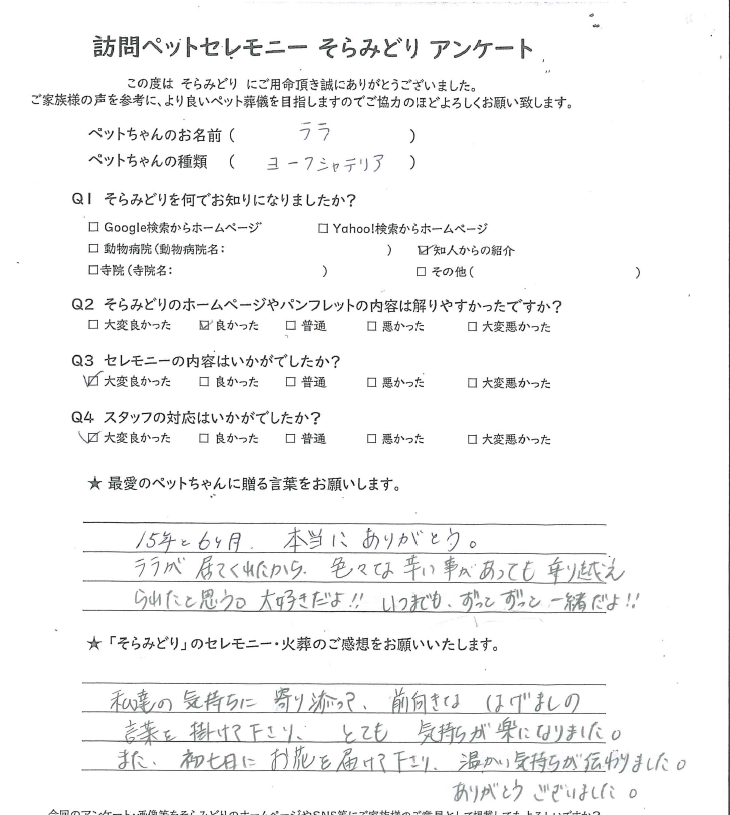 訪問ペットセレモニー そらみどり アンケート
この度は そらみどり にご用命頂き誠にありがとうございました。
ご家族様の声を参考に、より良いペット葬儀を目指しますのでご協力のほどよろしくお願い致します。
ペットちゃんのお名前 ( ララ )
ペットちゃんの種類 ( ヨークシャテリア )
Q1 そらみどりを何でお知りになりましたか?
□ Google検索からホームページ □ Yahoo!検索からホームページ
□ 動物病院(動物病院名: ) ☑知人からの紹介
□寺院(寺院名: ) □ その他( )
Q2 そらみどりのホームページやパンフレットの内容は解りやすかったですか?
□ 大変良かった ☑ 良かった □ 普通 □ 悪かった □ 大変悪かった
Q3 セレモニーの内容はいかがでしたか?
☑ 大変良かった □ 良かった □ 普通 □ 悪かった □ 大変悪かった
Q4 スタッフの対応はいかがでしたか?
☑ 大変良かった □ 良かった □ 普通 □ 悪かった □ 大変悪かった
★ 最愛のペットちゃんに贈る言葉をお願いします。
15年と6ヶ月. 本当に ありがとう。
ララが 居てくれたから. 色々な 辛い事があっても 乗り越え
られたと思う。大好きだよ!! いつまでも、ずっと ずっと 一緒だよ!!
★「そらみどり」のセレモニー・火葬のご感想をお願いいたします。
私達の 気持ちに 寄り添って、前向きな はげましの
言葉を 掛けて下さり、とても 気持ちが 楽になりました。
また、初七日に お花を届けて下さり、温かい気持ちが伝わりました。
ありがとう ございました。
今回のアンケート・画像等をそらみどりのホームページやSNS等にご家族様のご意見として掲載してもよろしいですか?